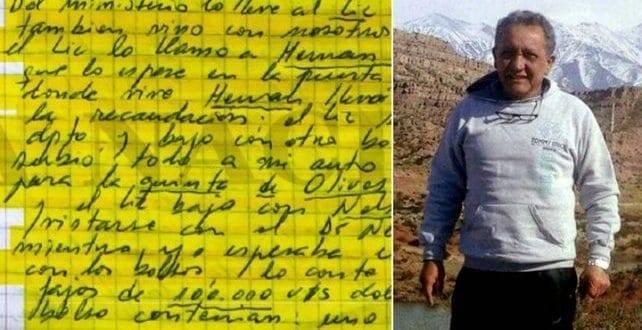 Del ministerio lo lleve al Lic
tambien vino con nosotros
el Lic lo llamo a Hernan
que lo espere en la puerta
donde vive Hernan llevó
la recaudacion: el Lic
dpto y bajo con otro bo
subio todo a mi auto
para la quinta de Olivos
y el Lic bajo con Nels
/ristarse con el Dr Ne
mientras yo esperaba e
con los bolsos / lo conta
fajos de 100.000 U$S dol
bolso contenian: uno